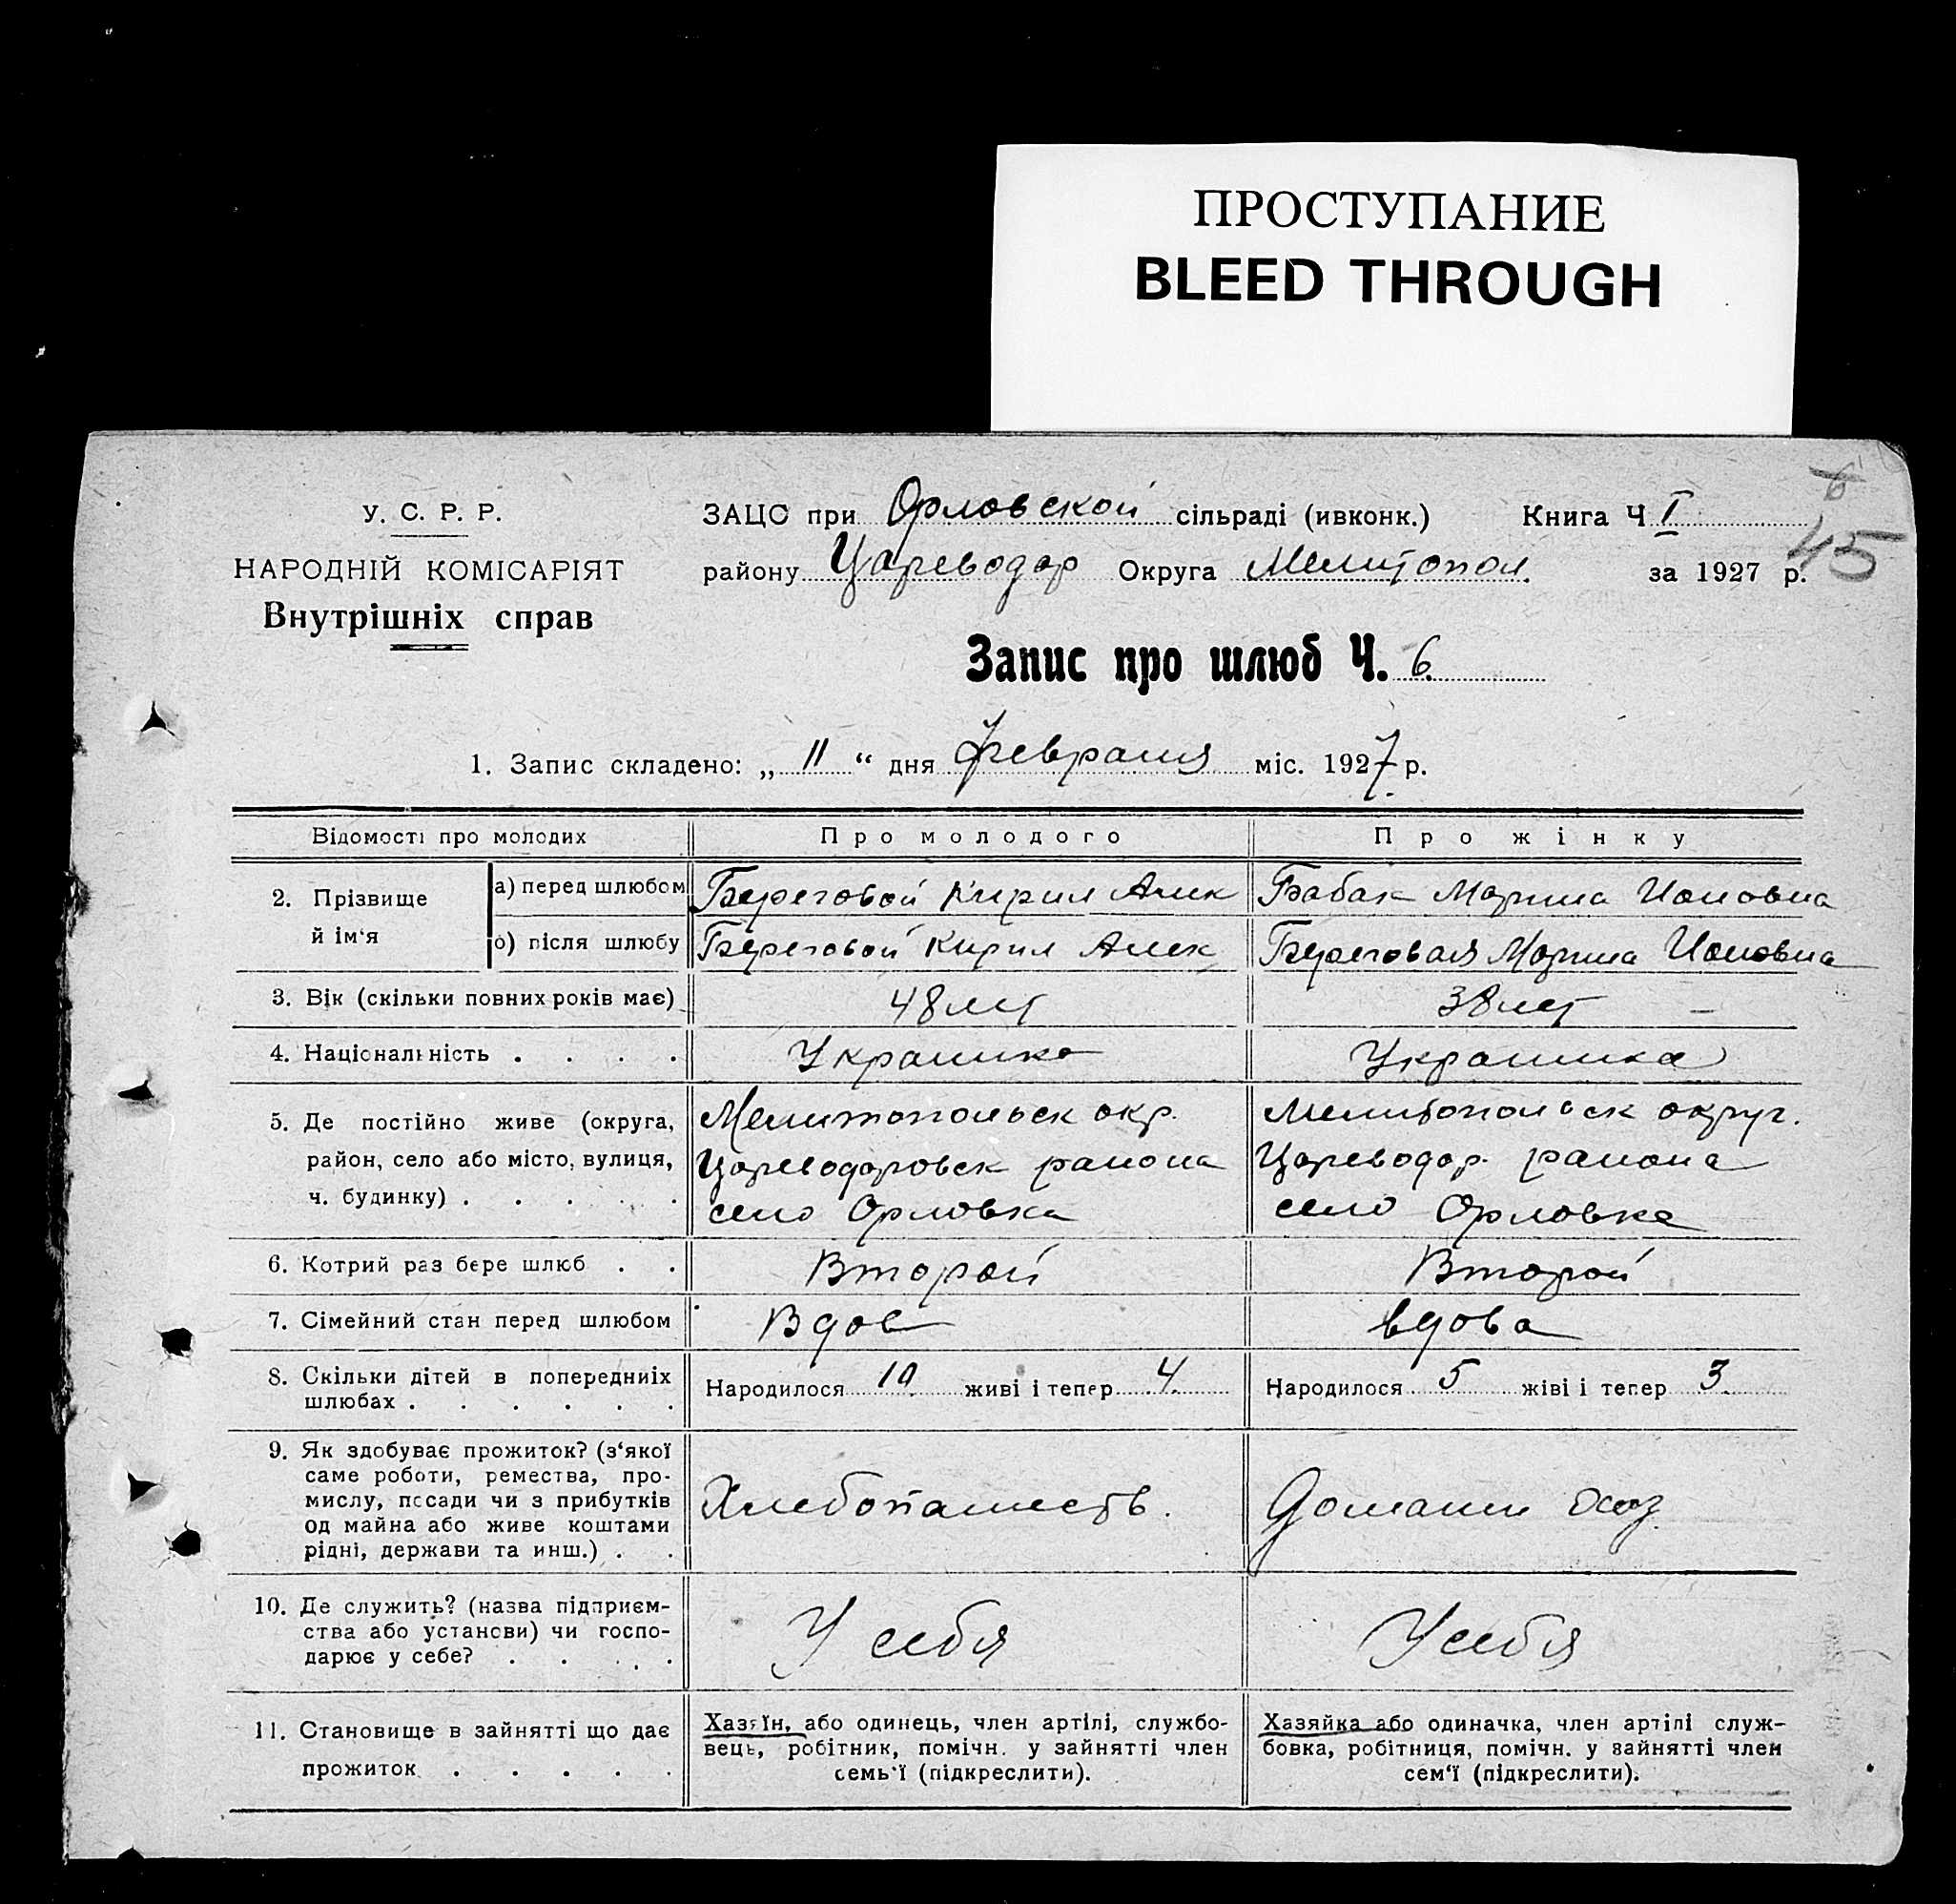 ПРОСТУПАНИЕ
BLEED THROUGH
45
У. С. Р. Р.
НАРОДНІЙ КОМІСАРІЯТ
Внутрішніх справ
ЗАЦС при Орловской сільраді (ивконк.) Книга Ч I
району Цареводар Округа Мелитопол. за 1927 р.
Запис про шлюб Ч. 6.
1. Запис складено: „ 11 “ дня февраля міс. 1927 р.
Відомості про молодих Про молодого Про жінку
2. Прізвище й ім‘я
а) перед шлюбом Береговой Кирил Алек Бабак Марина Ионовна
б) після шлюбу Береговой Кирил Алек Береговая Марина Ионовна
3. Вік (скільки повних років має) 48 лет 38 лет
4. Національність . . . . Украинка
5. Де постійно живе (округа, Мелитопольск окр. Мелитопольск округ.
район, село або місто, вулиця, Цареводаровск района Цареводар. района
ч. будинку) . . . . . село Орловка село Орловка
6. Котрий раз бере шлюб . . Второй Второй
7. Сімейний стан перед шлюбом Вдов вдова
8. Скільки дітей в попередниіх Народилося 10 живі і тепер 4. Народилося 5 жіві і тепер 3.
шлюбах . . . . . .
9. Як здобуває прожиток? (з‘якої
саме роботи, ремества, про-
мислу, посади чи з прибутків Хлебопашеств. Домашн
од майна або живе коштами
рідні, держави та инш.) . .
10. Де служить? (назва підприєм-
ства або установи) чи госпо- У себя У себя
дарює у себе? . . . .
11. Становище в зайнятті що дає Хазяїн, або одинець, член артілі, службо- Хазяйка або одиначка, член артілі служ-
прожиток . . . . . вець, робітник, помічн. у зайнятті член бовка, робітниця, помічн. у зайнятті член
семь‘ї (підкреслити). сем‘ї (підкреслити).